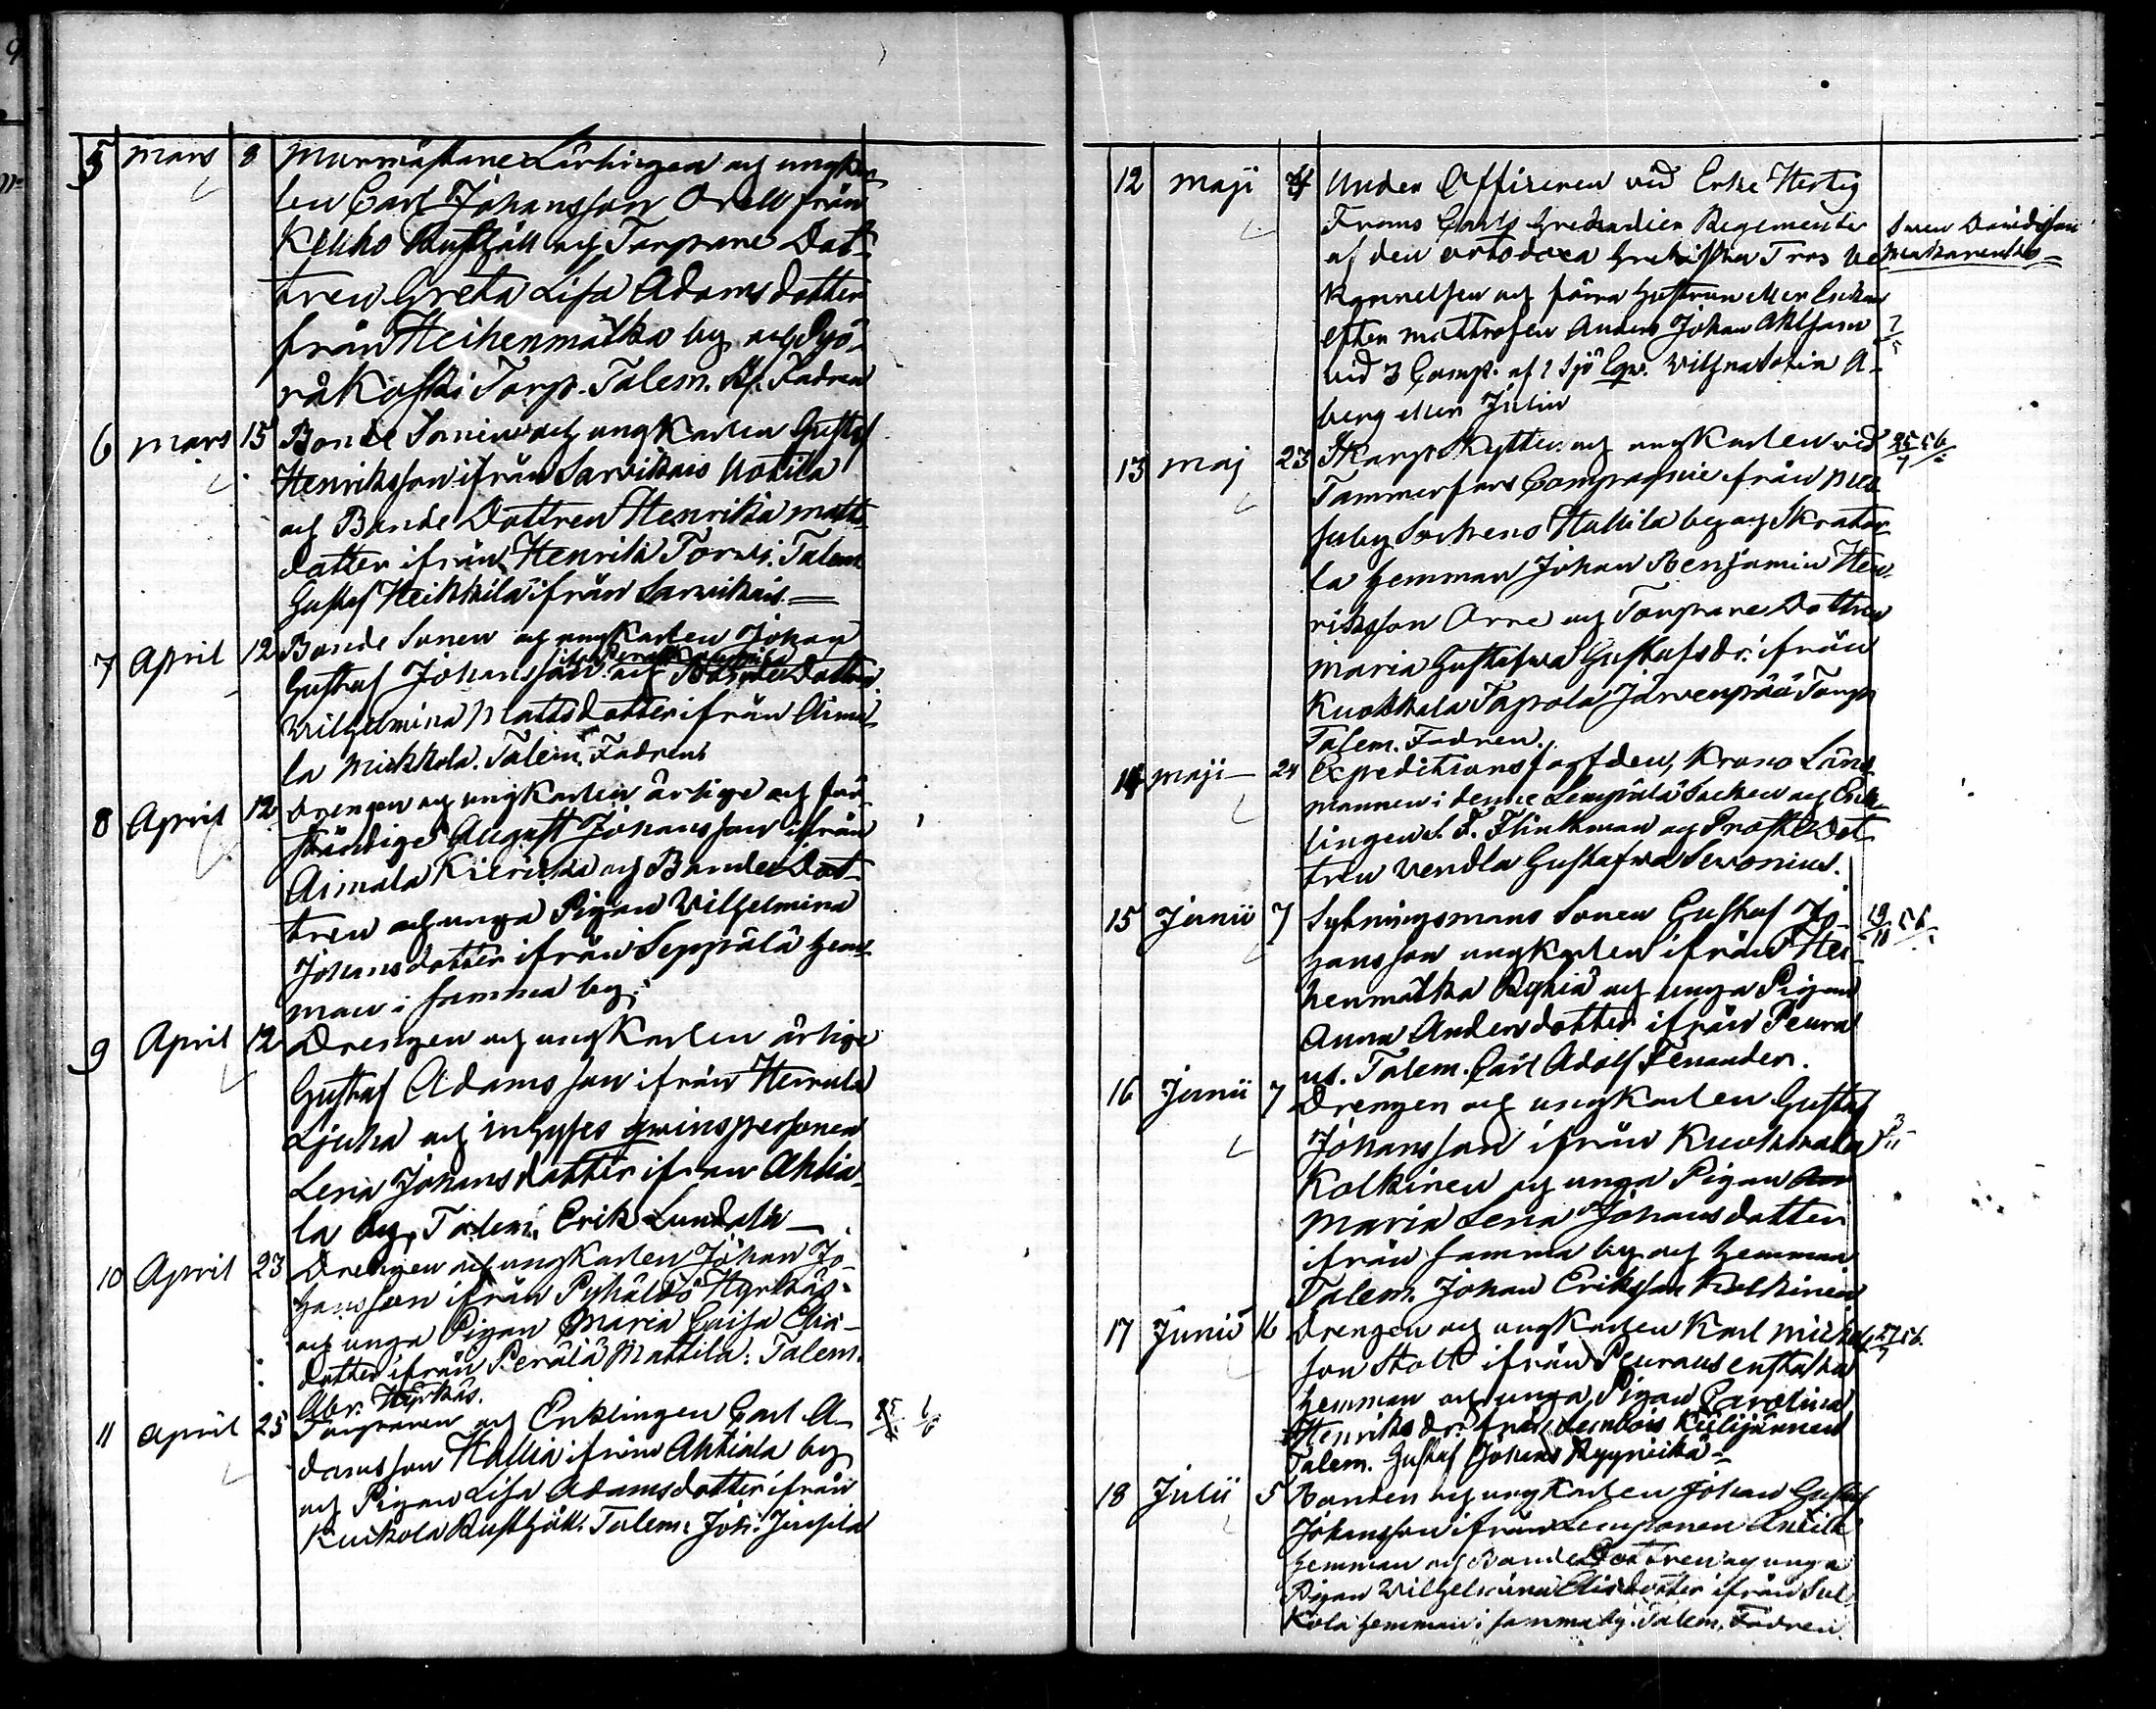 5 mars 8 Murmästare Lärlingen och ungkar
len Carl Johansson Orell från
Keiho Rusthåll och Torpare Dot-
tren Greta Lisa Adamsdotter
från Heihenmäkko by och Pyö-
räkoski Torp. Talem. Fadren
6 mars 15 Bonde Sonen och ungkarlen Gustaf
Henriksson ifrån Sarvikais Uotila
och Bonde Dottren Henrika matts-
dotter ifrån Henrikä Torvi. Talem.
Gustaf Heikkilä ifrån Sarvikais. =
7 April 12 Bonde Sonen och ungkarlen Johan
Gustaf Johansson och Bonde Dottren
Wilhelmina Mattsdotter ifrån Aima
la Mickkola. Talem. Fadren
8 April 12 drengen och ungkarlen ärlige och för-
ståndige August Johansson ifrån
Aimala Kierikka och Bonde Dot-
tren och unga Pigan Wilhelmina
Johansdotter ifrån Seppälä hem-
man i samma by.
9 April 12 Drengen och ungkarlen ärlige
Gustaf Adamsson ifrån Herrala
Ljuha och inhyses qvinspersonen
Lena Johansdotter ifrån Ahtia-
la by, Talem. Erik Lundelin
10 April 23 Drengen och ungkarlen Johan Jo-
hansson ifrån Pyhältö Hyrkäs
och unga Pigan Maria Caisa Elia-
dotter ifrån Perälä Mattila. Talem.
Abr. Hyrkäs.
11 April 25 Torparen och Enklingen Carl A-
damsson Hallia ifrån Ahtiala by
och Pigan Lisa Adamsdotter ifrån
Kuckola Rusthåll. Talem. Joh. Jusila
12 maji 4 Under Officeren vid Erke Hertig
Frans Carls Grenadier Regemente
af den ortodoxa Grekiska Tros be
kännelsen och förra Hustrun eller Enkan
efter mattrosen Anders Johan Ahlsson
vid 3 Comp. af 1 Sjö Eqv. Wilhelmina Sofia A-
berg eller Julin
13 maj 23 Skarp Skytten och ungkarlen vid 25 56
Tammerfors Compagnie ifrån Mes-
suby Sockens Hallila by och Skratar-
la hemman Johan Benjamin Hen-
riksson Orre och Torpare Dottren
Maria Gustafva Gustafsdr. ifrån
Kuokkala Tapola Järvenpää Torp
Talem. Fadren.
14 maji 24 Expeditions fogden, Krono Läns-
mannen i denne Lempälä Socken och Enk-
lingen S. F. Flinkman och Prost Dot-
tren Vendla Gustafva Sevonius.
15 Junii 7 Sexmans Sonen Gustaf Jo- 19 56
hansson ungkarlen ifrån Hei-
henmäkka Ryhiä och unga Pigan
Anna Andersdotter ifrån Peura
us. Talem. Carl Adolf Fenander.
16 Junii 7 Drengen och ungkarlen Gustaf
Johansson ifrån Kuokkala
Kolkinen och unga Pigan
Maria Lena Johansdotter
ifrån samma by och hemman
Talem. Johan Eriksson Kolkinen
17 Junii 16 Drengen och ungkarlen Karl Michels 27 56
son Stolt ifrån Peuraus enstaka
hemman och unga Pigan Carolina
Henriksdr. från Lembois Kulijärven
Talem. Gustaf Johans Ryynikä =
18 Julii 5 Bonden och ungkarlen Johan Gustaf
Johansson ifrån Lemponen Anttila
hemman och Bonde Dottren och unga
Pigan Wilhelmina Eliedotter ifrån Sul-
kola hemman i samma by. Talem. Fadren.